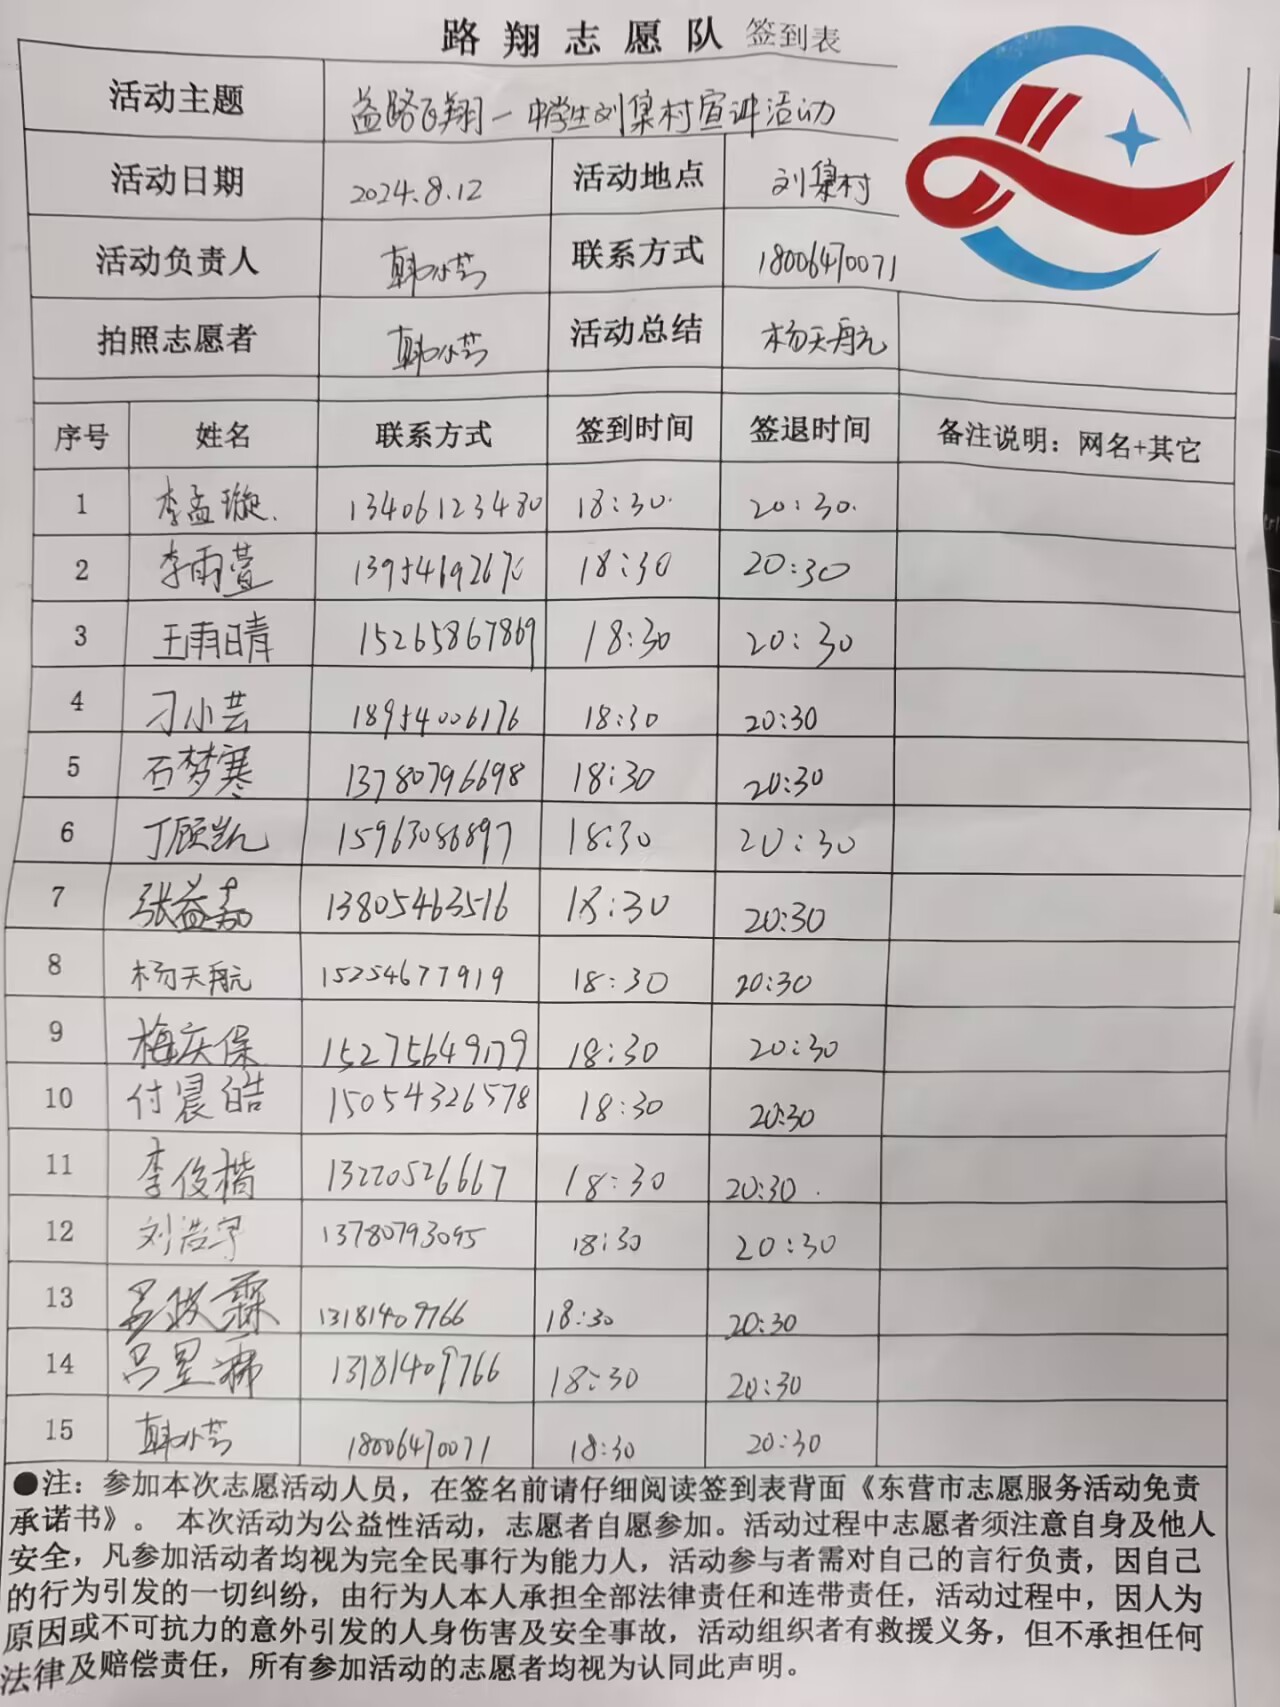 路翔志愿队 签到表
活动主题 益路飞翔—中学生刘集村宣讲活动
活动日期 2024.8.12 活动地点 刘集村
活动负责人 韩小芸 联系方式 18006470071
拍照志愿者 韩小芸 活动总结 杨天航
序号 姓名 联系方式 签到时间 签退时间 备注说明：网名+其它
1 李孟璇 13406123480 18:30 20:30
2 李雨萱 18:30 20:30
3 王雨晴 15265867869 18:30 20:30
4 刁小芸 18954006176 18:30 20:30
5 石梦寒 13780796698 18:30 20:30
6 丁顾凯 15963086897 18:30 20:30
7 张益嘉 13805463516 18:30 20:30
8 杨天航 15254677919 18:30 20:30
9 梅庆保 15275649179 18:30 20:30
10 付晨皓 15054326578 18:30 20:30
11 李俊楷 13220526667 18:30 20:30
12 刘浩宇 13780793095 18:30 20:30
13 13181409766 18:30 20:30
14 13181409766 18:30 20:30
15 韩小芸 18006470071 18:30 20:30
●注：参加本次志愿活动人员，在签名前请仔细阅读签到表背面《东营市志愿服务活动免责
承诺书》。 本次活动为公益性活动，志愿者自愿参加。活动过程中志愿者须注意自身及他人
安全，凡参加活动者均视为完全民事行为能力人，活动参与者需对自己的言行负责，因自己
的行为引发的一切纠纷，由行为人本人承担全部法律责任和连带责任，活动过程中，因人为
原因或不可抗力的意外引发的人身伤害及安全事故，活动组织者有救援义务，但不承担任何
法律及赔偿责任，所有参加活动的志愿者均视为认同此声明。